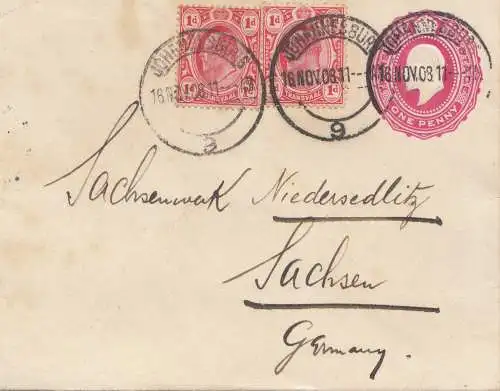 1d 1d
TRANSVAAL TRANSVAAL
1d 1d
JOHANNESBURG
16 NOV. 08. 11
9
JOHANNESBURG
16 NOV. 08. 11
9
JOHANNESBURG
16 NOV. 08. 11
ONE PENNY
Sachsenwerk Niedersedlitz
Sachsen
Germany.